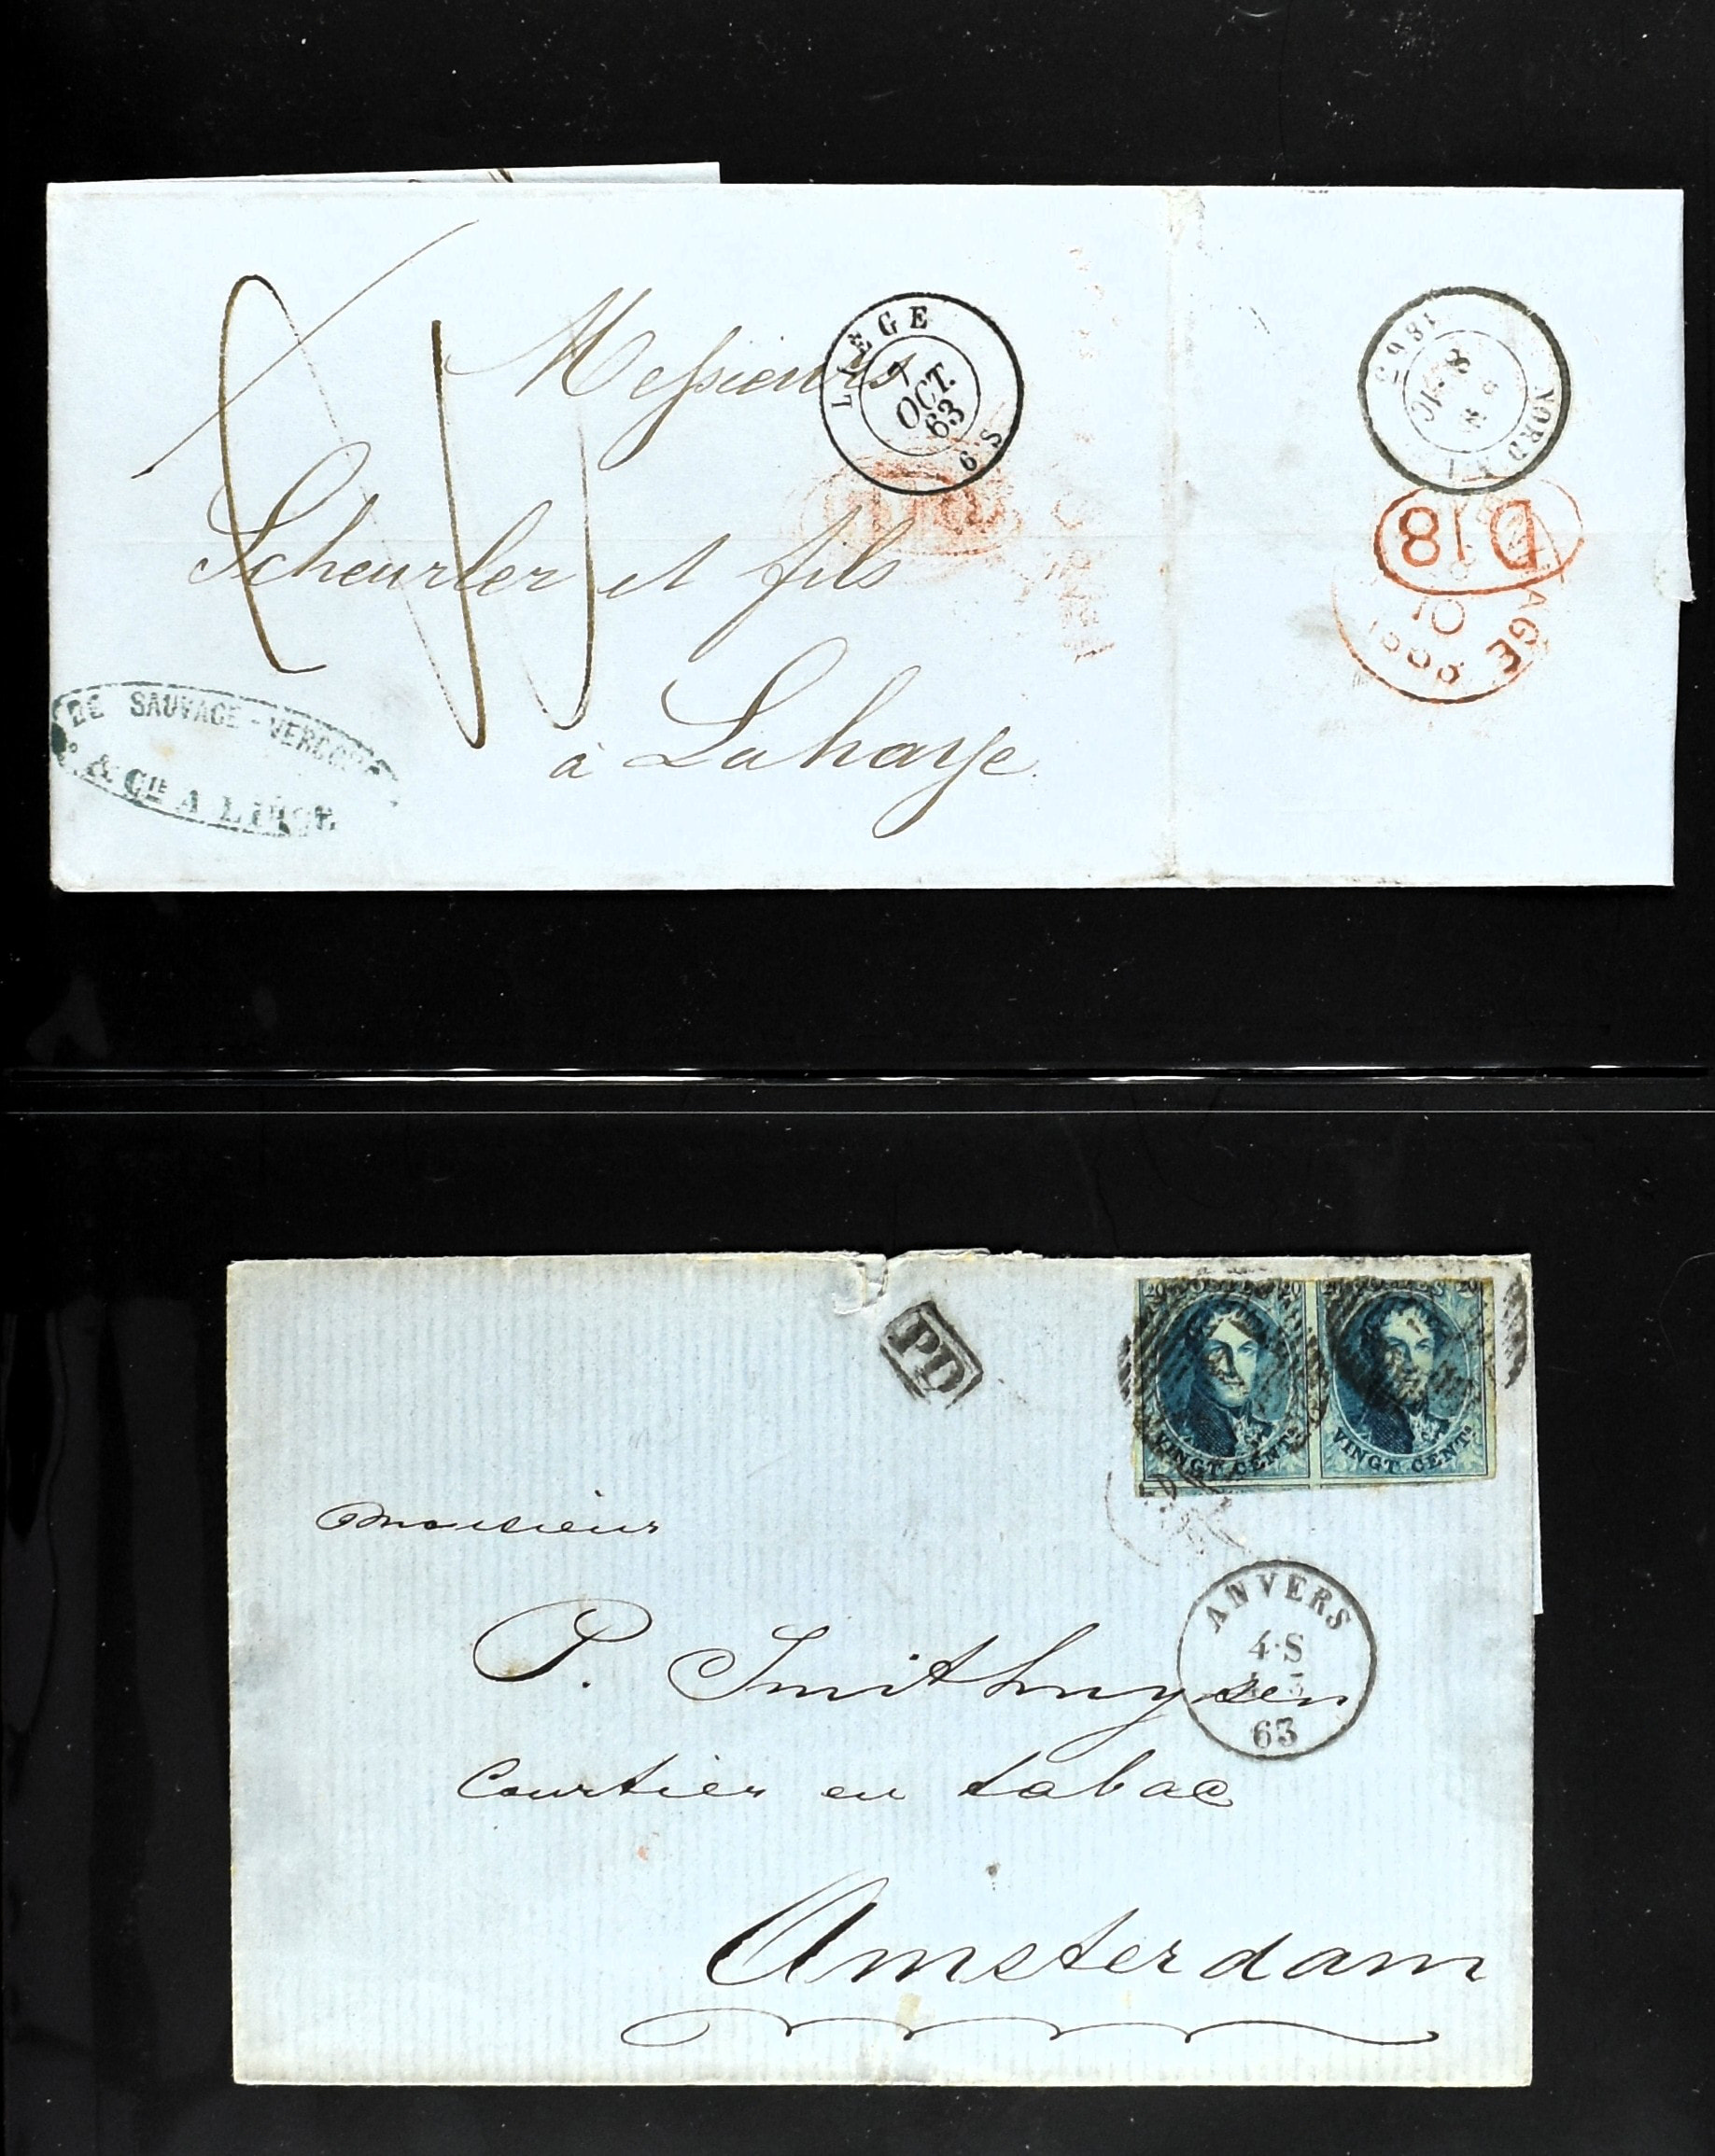 Messieurs
LIÈGE
7
OCT.
63
6 S
Scheurler et fils
à Lahaye
DE SAUVAGE-VERCOUR
& CIE A LIEGE
1863
NORD
D18
PD
20 20
20 20
VINGT CENTS
VINGT CENTS
monsieur
ANVERS
4·S
63
P. Smithuysen
Courtier en tabac
Amsterdam